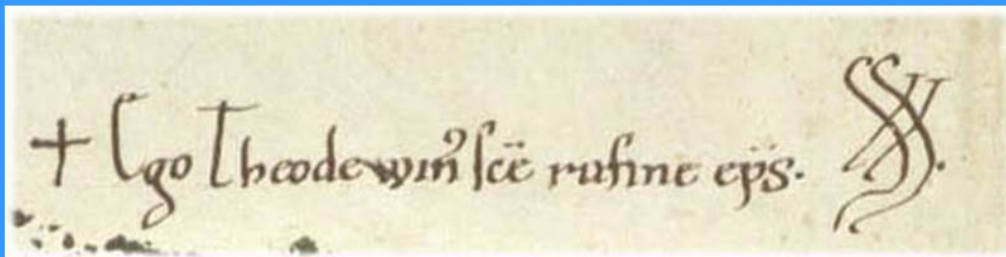 + Ego Theodewinꝰ sc̄e rufine ep̄s.